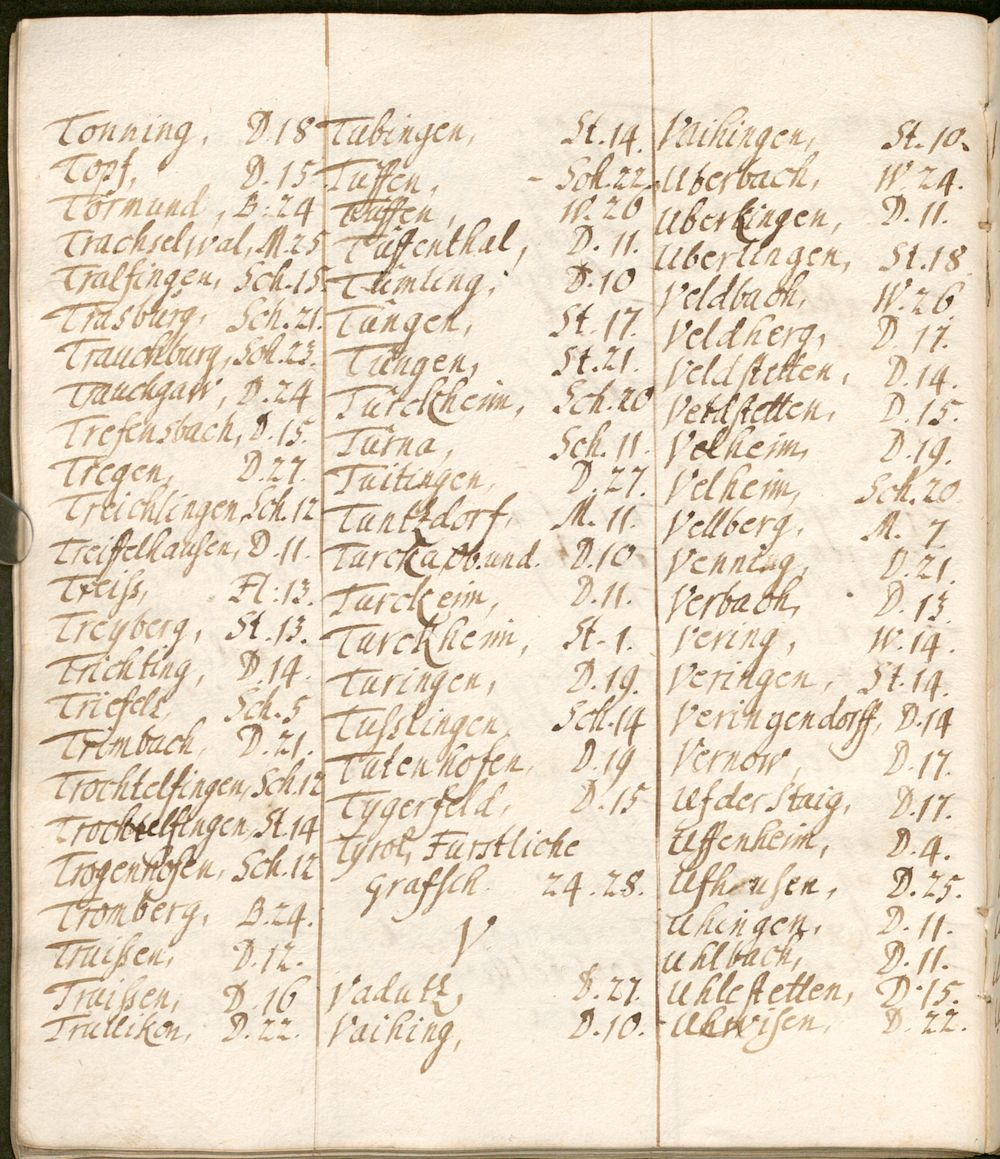 Tonning, D.18
Topf, D.15
Tormund, B.24
Trachselwal, M.25
Tralfingen, Sch.15
Trasburg, Sch.21.
Trauchburg, Sch.23.
Trauchgaw, D.24
Trefensbach, D.15.
Tregen, D.27.
Treichlingen, Sch.12
Treiffelhausen, D.11.
Treiss, Fl:13.
Treyberg, St.13.
Trichting, D.14.
Triefels, Sch.5
Trimbach, D.21.
Trochtelfingen, Sch.12
Trochtelfingen, St.14
Trogenhofen, Sch.12
Tromberg, B.24.
Truissen, D.12.
Truissen, D.16
Trullikon, D.22.
Tubingen, St.14.
Tuffen, Sch.22.
Tuffen, W.20
Tüffenthal, D.11.
Tümling, D.10
Tüngen, St.17.
Tüngen, St.21.
Türckheim, Sch.20
Türna, Sch.11.
Tuitingen, D.27.
Tuntzdorf, M.11.
D.10
Turckeim, D.11.
Turckheim, St.1.
Turingen, D.19.
Tusslingen, Sch.14
Tutenhofen, D.19
Tygerfeld, D.15
Tyrol, Furstliche
Grafsch. 24.28.
V.
Vadutz, D.27
Vaihing, D.10.
Vaihingen, St.10.
Uberbach, W.24.
Uberkingen, D.11.
Uberlingen, St.18.
Veldbach, W.26.
Veldherg, D.17.
Veldstetten, D.14.
Veldstetten, D.15.
Velheim, D.19.
Velheim, Sch.20.
Vellberg, M.7
Venning, D.21.
Verbach, D.13
Vering, W.14.
Veringen, St.14.
Veringendorff, D.14
Vernow, D.17.
Uf der Staig, D.17.
Uffenheim, D.4.
Ufhousen, D.25.
Uhingen, D.11.
Uhlbach, D.11.
Uhlestetten, D.15.
Uhwisen, D.22.